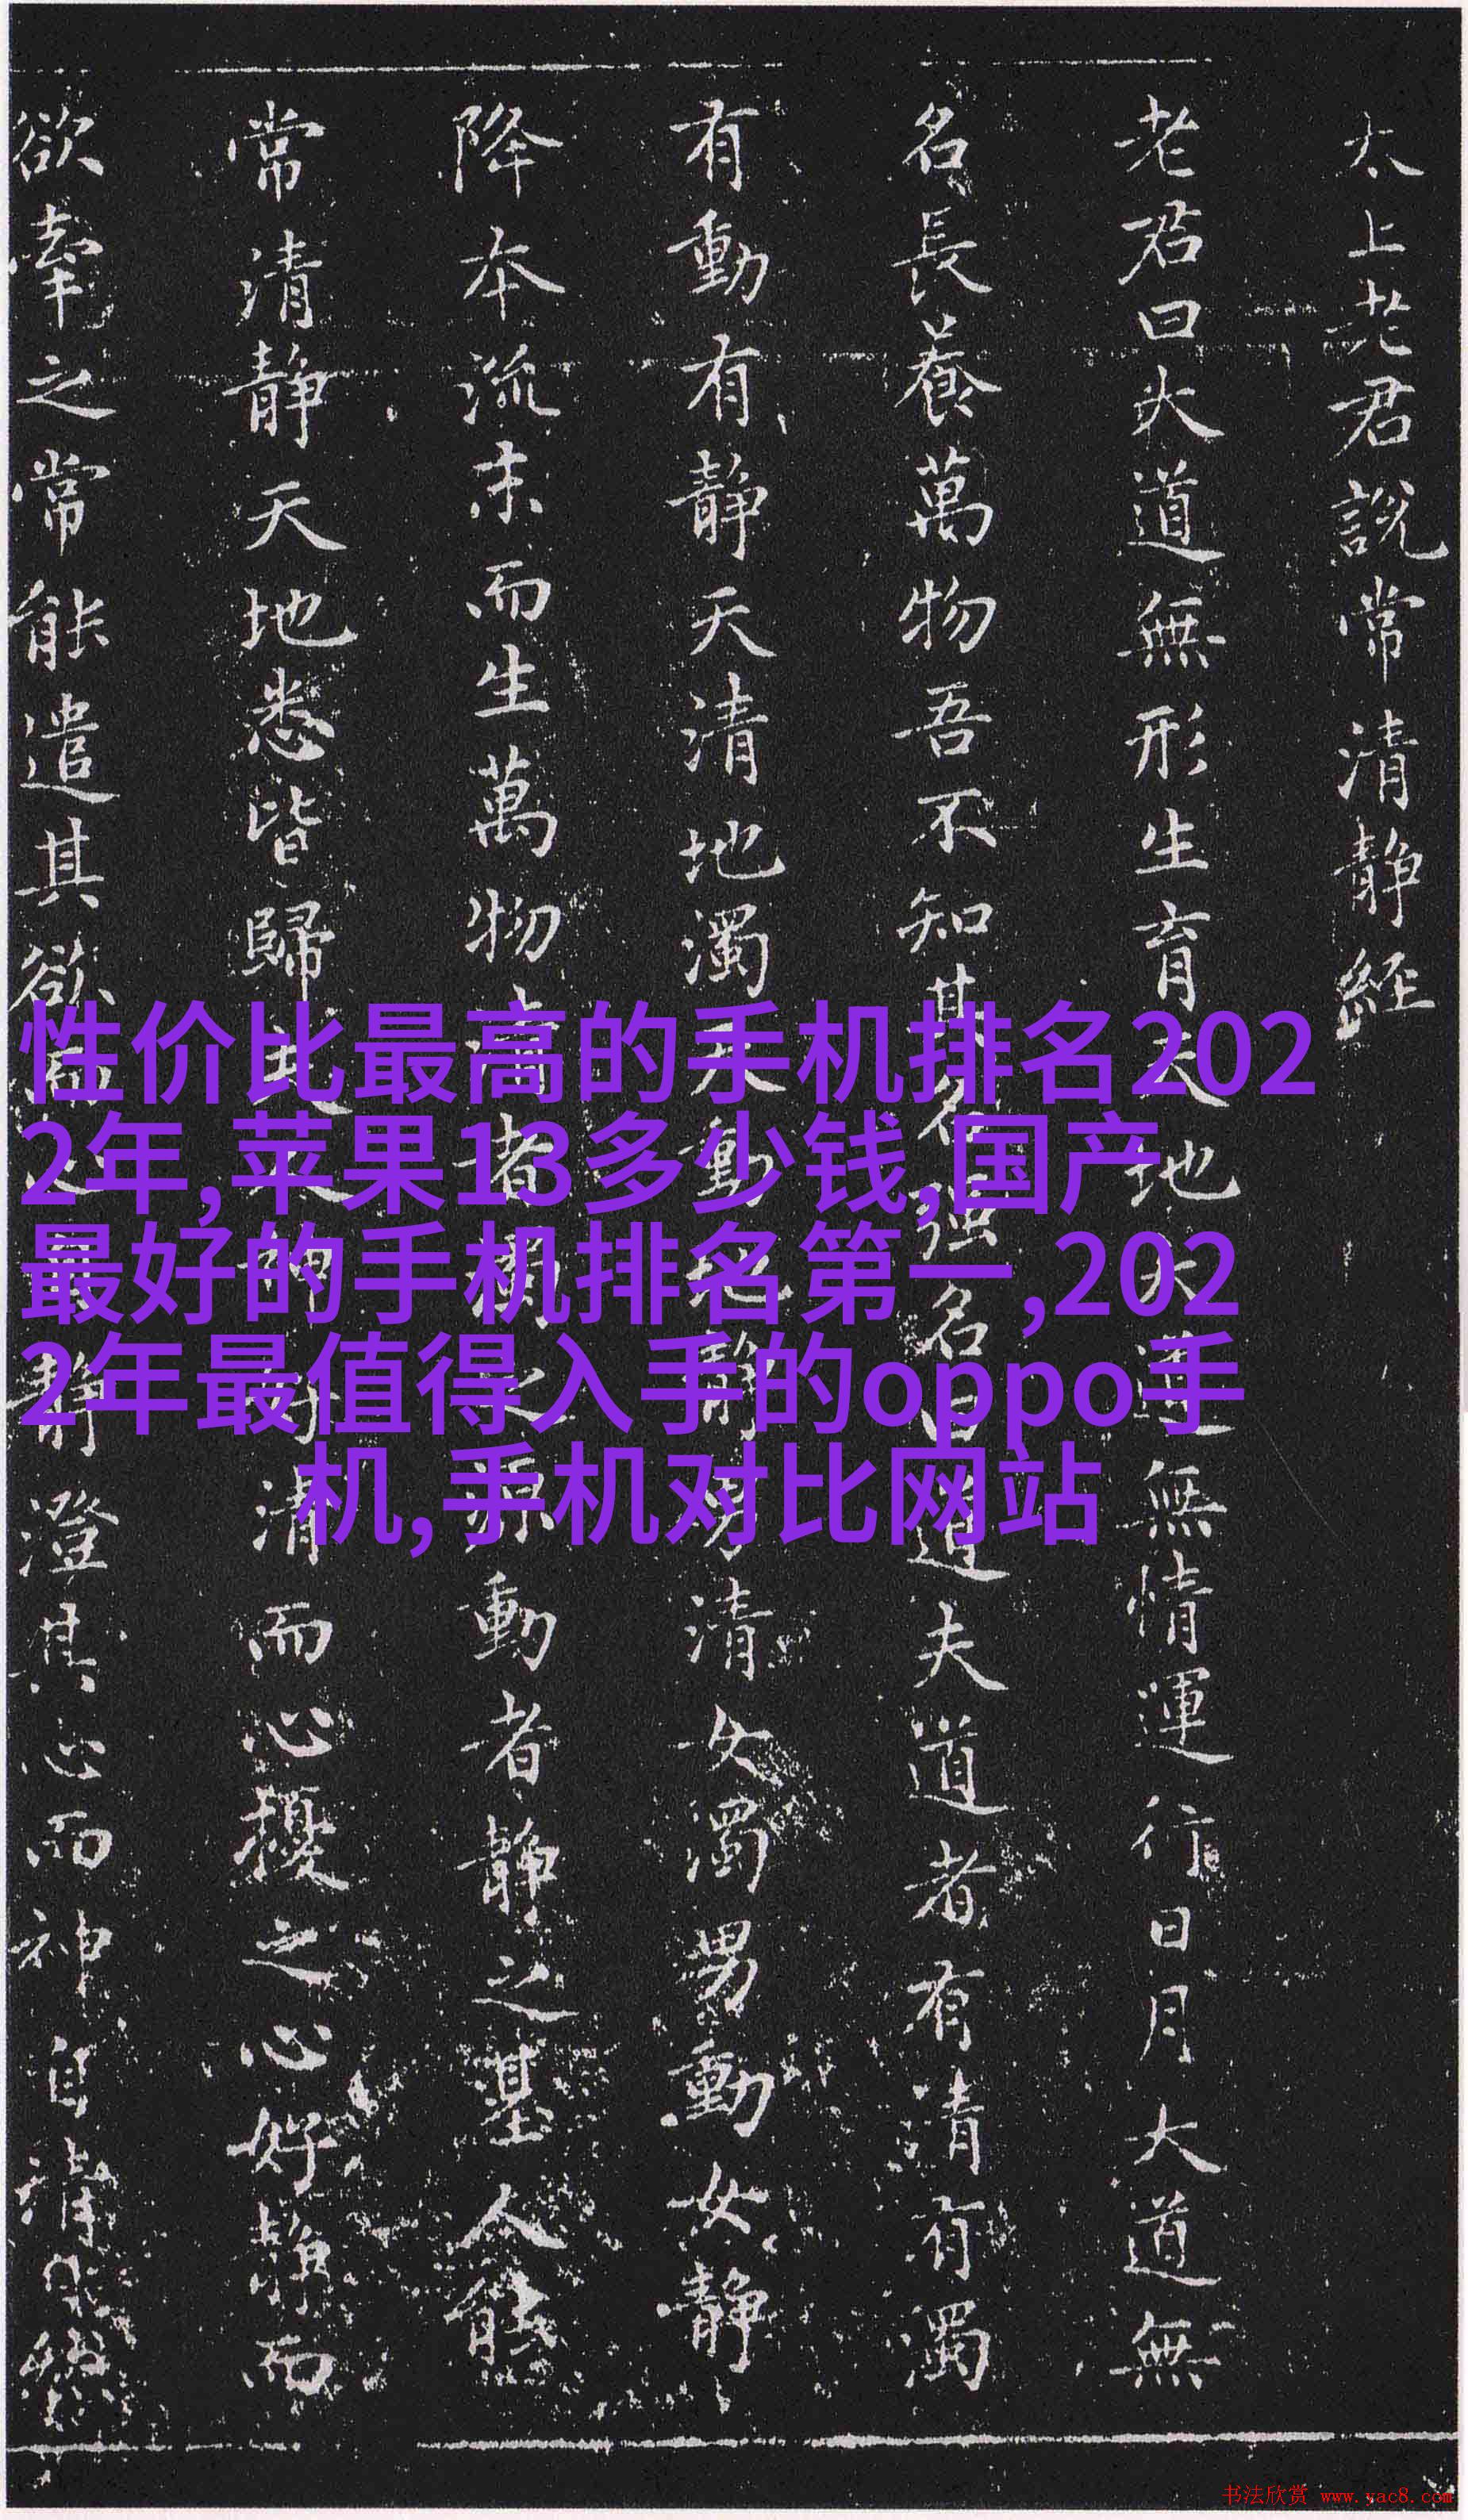 太上老君說常清静經
老君曰大道無形生育天地大道無情運行日月大道無
名長養萬物吾不知其名强名曰道夫道者有清有濁
有動有静天清地濁天動地静男清女濁男動女静
降本流末而生萬物清者濁之源動者静之基人能
常清静天地悉皆歸夫人神好清而心擾之心好静而
欲牽之常能遣其欲而心自静澄其心而神自清自然
性价比最高的手机排名202
2年,苹果13多少钱,国产
最好的手机排名第一,202
2年最值得入手的oppo手
机,手机对比网站
书法欣赏 www.yac8.com